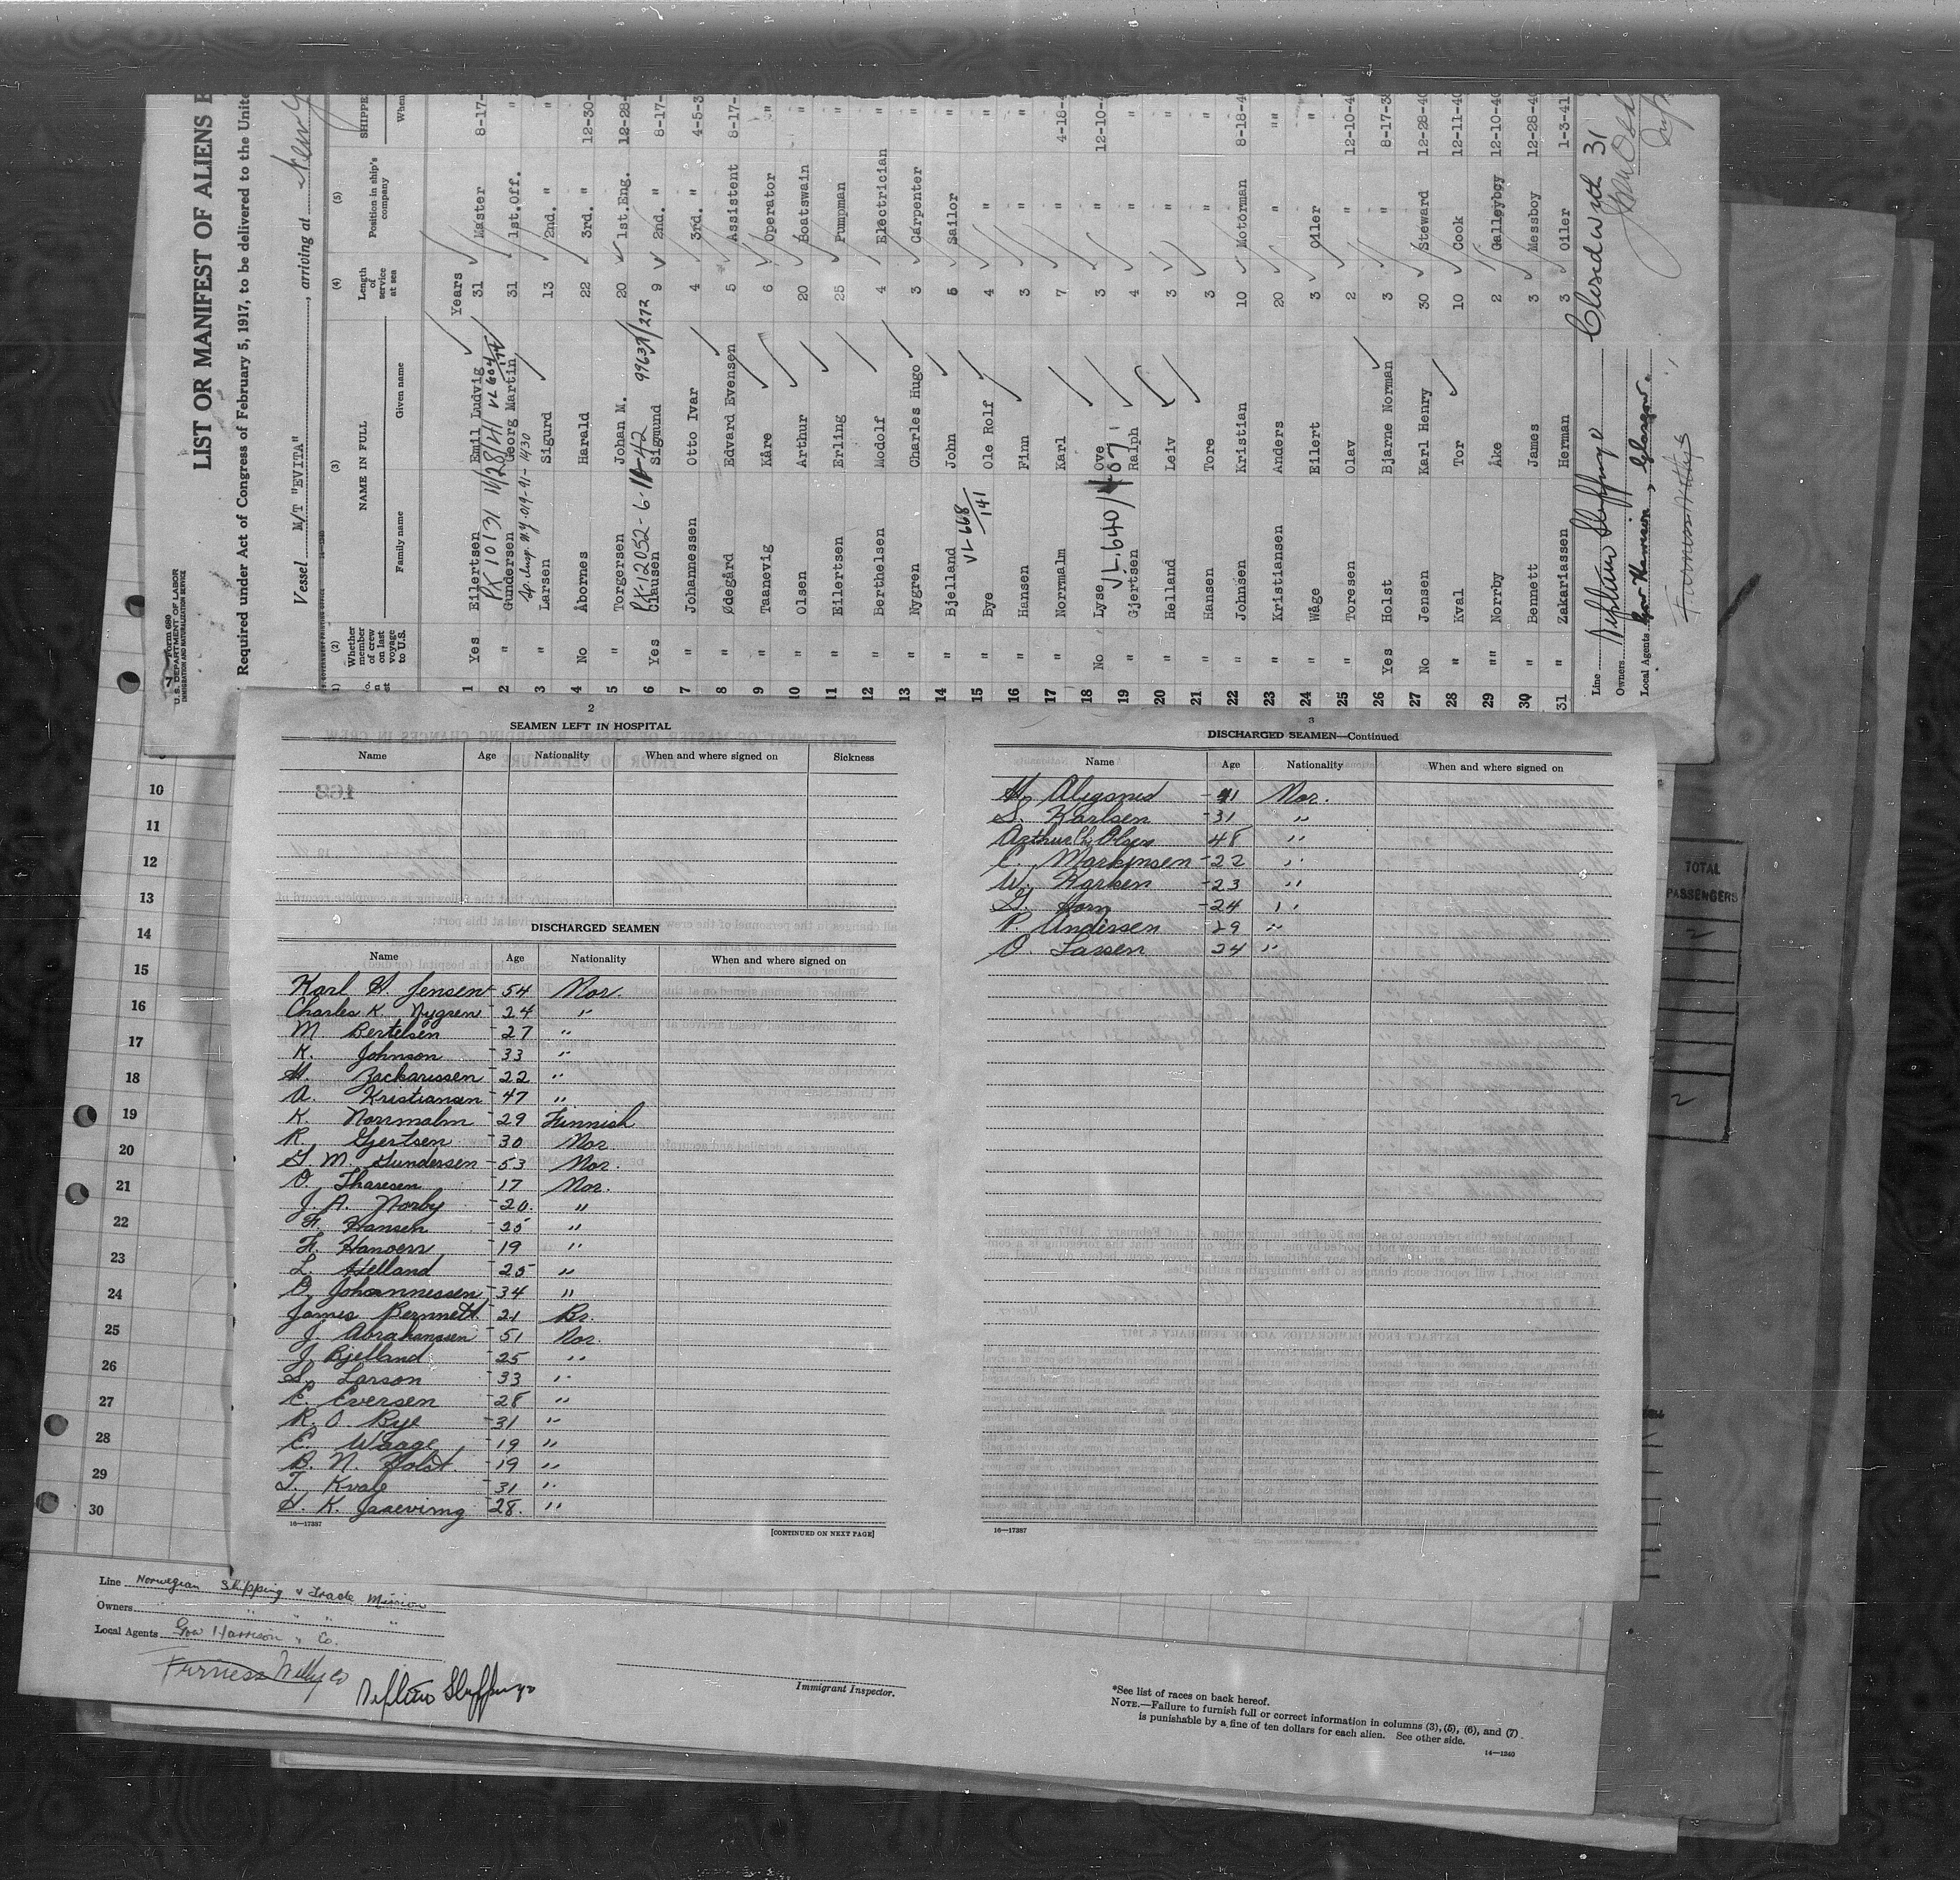 Form 680
U.S. DEPARTMENT OF LABOR
IMMIGRATION AND NATURALIZATION SERVICE
LIST OR MANIFEST OF ALIENS E
Required under Act of Congress of February 5, 1917, to be delivered to the Unite
Vessel M/T "EVITA", arriving at New Y
(2) (3) (4) (5)
Whether member of crew on last voyage to U.S. NAME IN FULL Family name Given name Length of service at sea Position in ship's company SHIPPE When
Years
1 Yes Eilertsen Emil Ludvig 31 Master 8-17-
PX 10131 11/28/41 VL 604
2 " Gundersen Georg Martin 31 1st.Off. "
3 " Larsen Sigurd 13 2nd. " "
4 No Åbornes Harald 22 3rd. " 12-30-
5 " Torgersen Johan M. 20 1st.Eng. 12-28-
PX-12052-6-11-42 99639/272
6 Yes Clausen Sigmund 9 2nd. " 8-17-
7 " Johannessen Otto Ivar 4 3rd. " 4-5-3
8 " Ødegård Edvard Evensen 5 Assistent 8-17-
9 " Taanevig Kåre 6 Operator "
10 " Olsen Arthur 20 Boatswain "
11 " Eilertsen Erling 25 Pumpman "
12 " Berthelsen Modolf 4 Electrician "
13 " Nygren Charles Hugo 3 Carpenter "
14 " Bjelland John 5 Sailor "
VL 668/141
15 " Bye Ole Rolf 4 " "
16 " Hansen Finn 3 " "
17 " Norrmalm Karl 7 " 4-18-4
18 No Lyse Ove 3 " 12-10-4
19 " Gjertsen Ralph 4 " "
20 " Helland Leiv 3 " "
21 " Hansen Tore 3 " "
22 " Johnsen Kristian 10 Motorman 8-18-4
23 " Kristiansen Anders 20 " "
24 " Wåge Eilert 3 Oiler "
25 " Toresen Olav 2 " 12-10-4
26 Yes Holst Bjarne Norman 3 " 8-17-38
27 No Jensen Karl Henry 30 Steward 12-28-40
28 " Kval Tor 10 Cook 12-11-40
29 "" Norrby Åke 2 Galleyboy 12-10-40
30 " Bennett James 3 Messboy 12-28-40
31 " Zakariassen Herman 3 Oiler 1-3-41
Line
Closed with 31
Owners
Local Agents Gow Harrison, Glasgow.
2
SEAMEN LEFT IN HOSPITAL
Name Age Nationality When and where signed on Sickness
DISCHARGED SEAMEN
Name Age Nationality When and where signed on
Karl H. Jensen 54 Nor.
Charles K. Nygren 24 "
M. Bertelsen 27 "
K. Johnson 33 "
H. Zackarissen 22 "
A. Kristiansen 47 "
K. Norrmalm 29 Finnish
R. Gjertsen 30 Nor
G. M. Gundersen 53 Nor.
O. Tharesen 17 Nor.
J. A. Norby 20. "
F. Hansen 25 "
F. Hanoerr 19 "
L. Helland 25 "
O. Johannessen 34 "
James Bennett 21 Br.
J. Abrahansen 51 Nor.
J. Bjelland 25 "
S. Larson 33 "
E. Eversen 28 "
R. O. Bye 31 "
E. Waage 19 "
B. N. Holst 19 "
T. Kvale 31 "
H. K. Jaaeving 28. "
16—17387 [CONTINUED ON NEXT PAGE]
3
DISCHARGED SEAMEN—Continued
Name Age Nationality When and where signed on
41 Nor.
S. Karlsen 31 "
Arthur Olsen 48 "
E. Markinsen 22 "
W. Karlsen 23 "
G. Horn 24 "
P. Andissen 29 "
O. Lassen 24 "
16—17387
TOTAL
PASSENGERS
2
2
10
11
12
13
14
15
16
17
18
19
20
21
22
23
24
25
26
27
28
29
30
Line Norwegian Shipping & Trade Mission
Owners " " " "
Local Agents Gow Harrison & Co.
Furness Withy Co
Immigrant Inspector.
*See list of races on back hereof.
NOTE.—Failure to furnish full or correct information in columns (3), (5), (6), and (7)
is punishable by a fine of ten dollars for each alien. See other side.
14—1240